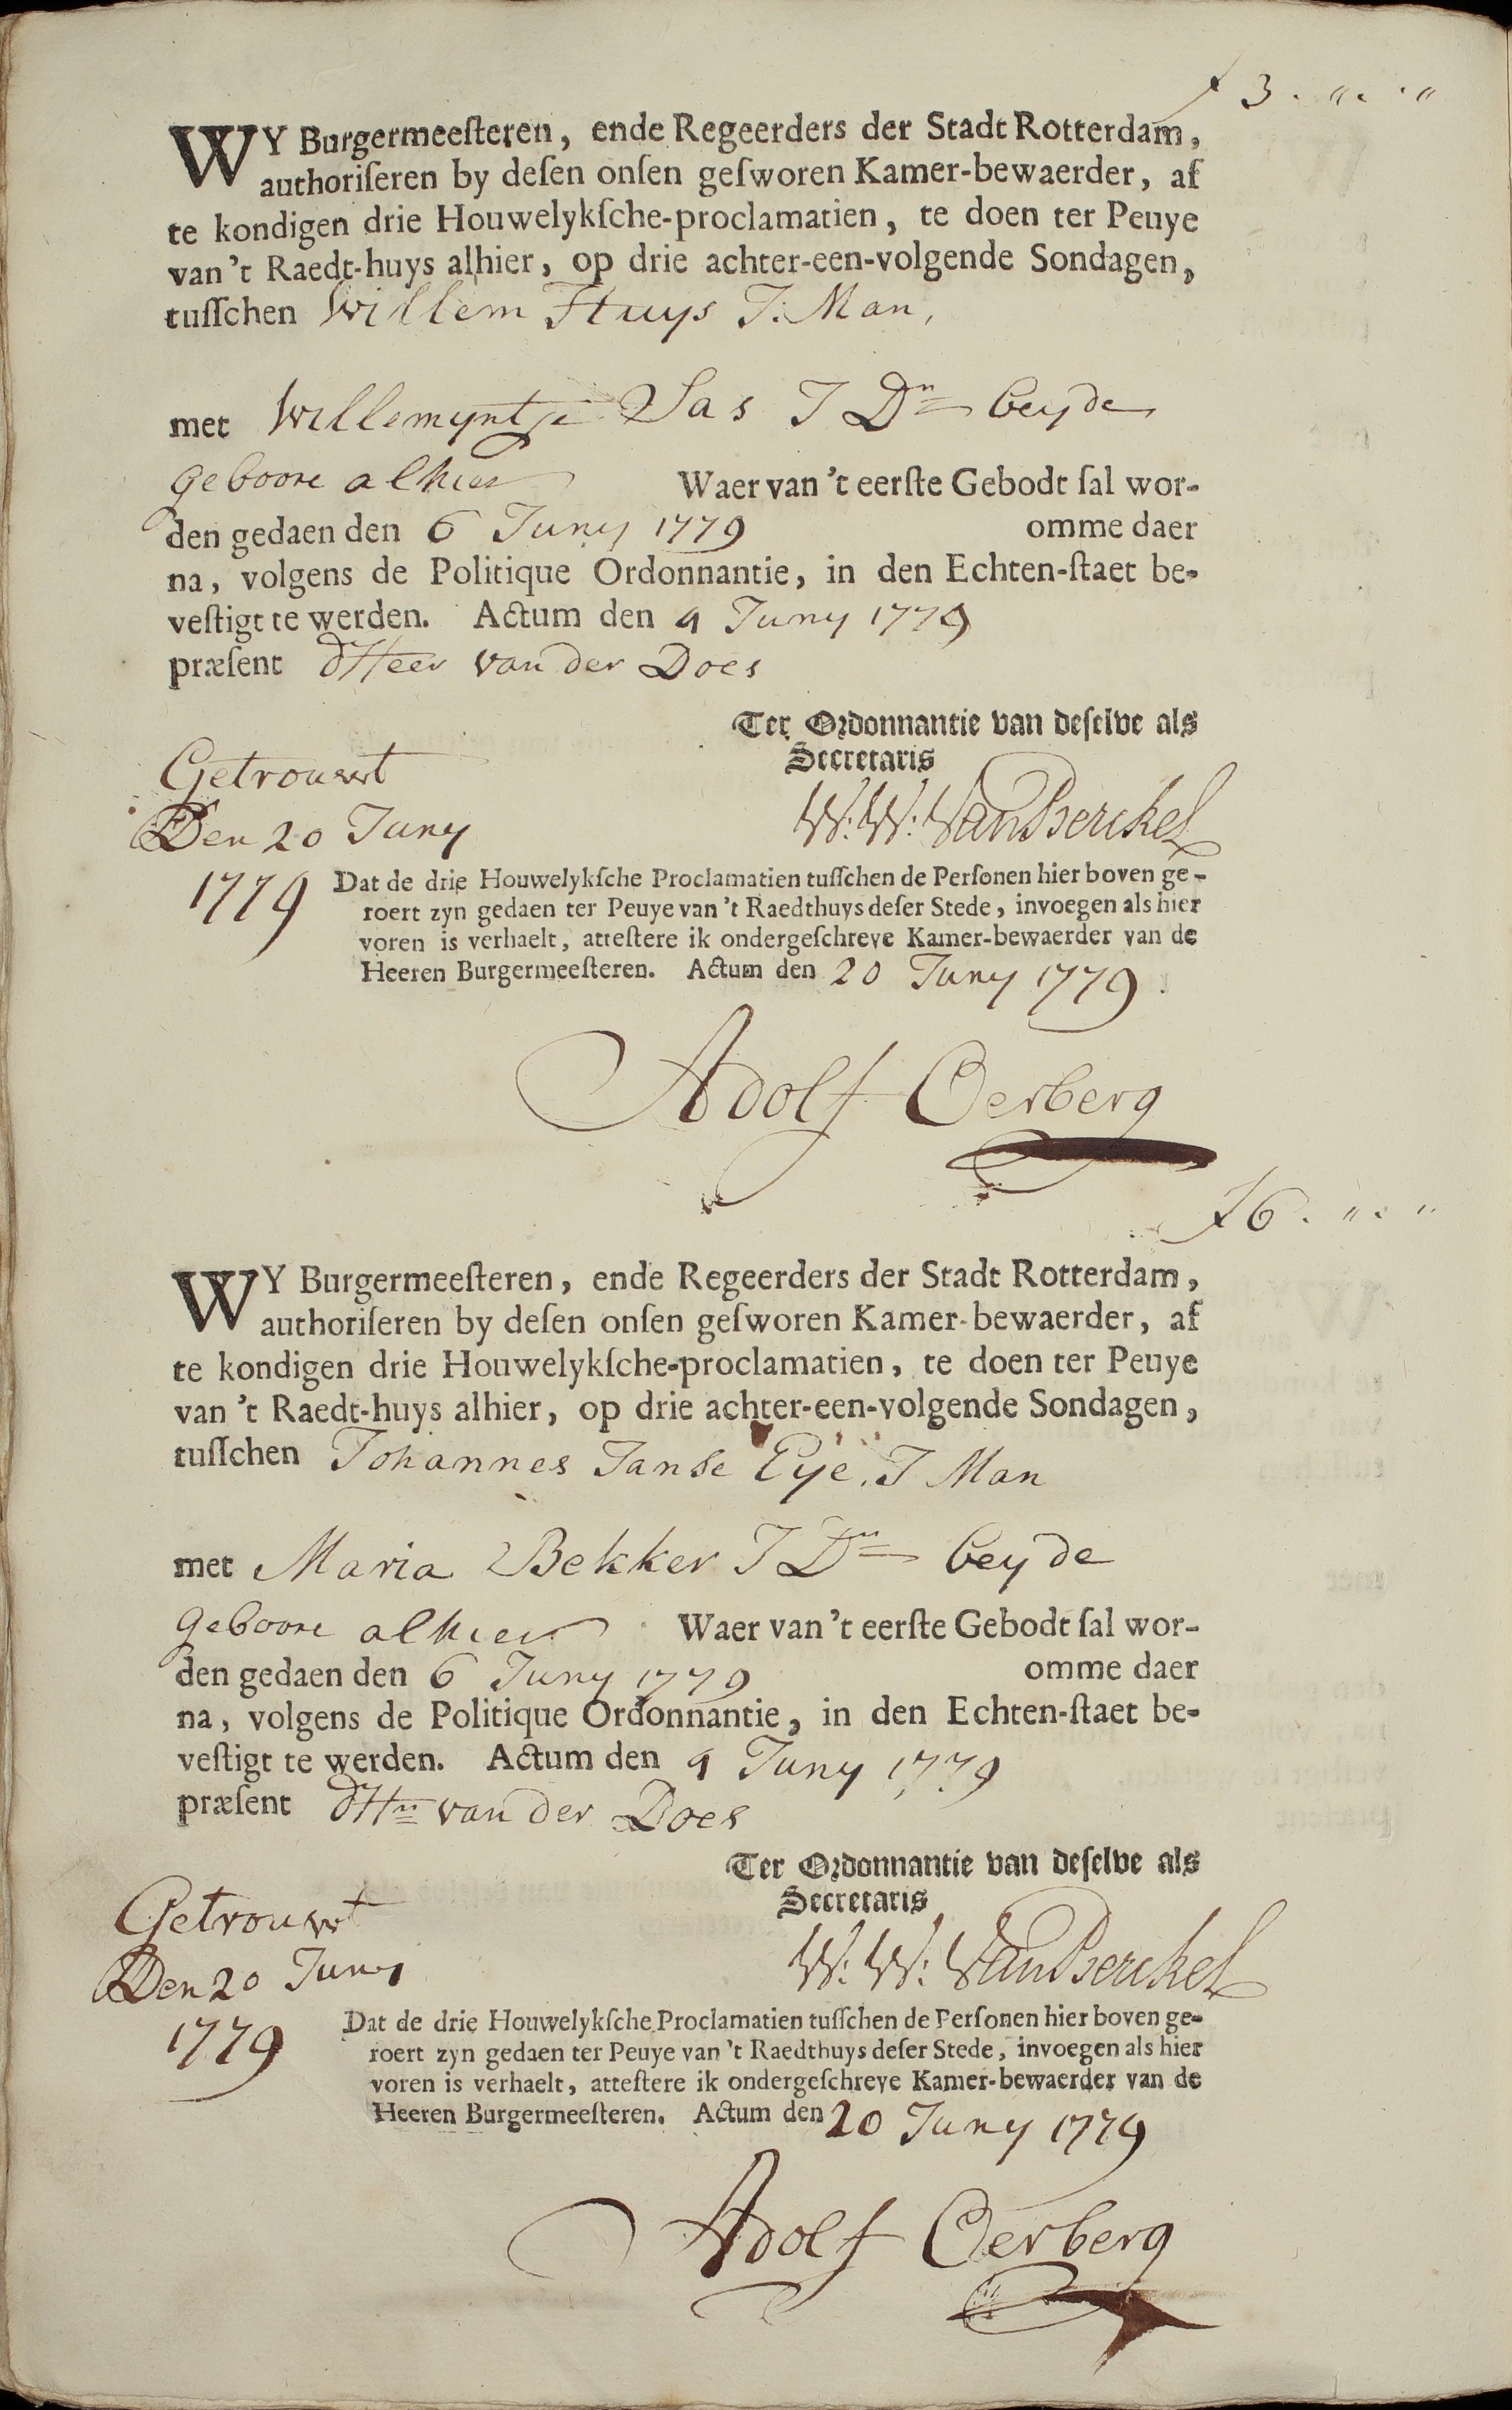 f 3 . " . . "
WY Burgermeeſteren, ende Regeerders der Stadt Rotterdam,
authoriſeren by deſen onſen geſworen Kamer-bewaerder, af
te kondigen drie Houwelykſche-proclamatien, te doen ter Peuye
van 't Raedt-huys alhier, op drie achter-een-volgende Sondagen,
tuſſchen Willem Huys J: Man,
met Willemyntje Sas J Dn beyde
geboore alhier Waer van 't eerſte Gebodt ſal wor-
den gedaen den 6 Juny 1779 omme daer
na, volgens de Politique Ordonnantie, in den Echten-ſtaet be-
veſtigt te werden. Actum den 4 Juny 1779
præſent dHeer van der Does
Ter Ordonnantie van deſelve als
Secretaris
Getrouwt
W: W: Van Berckel
Den 20 Juny
1779
Dat de drie Houwelykſche Proclamatien tuſſchen de Perſonen hier boven ge-
roert zyn gedaen ter Peuye van 't Raedthuys deſer Stede, invoegen als hier
voren is verhaelt, atteſtere ik ondergeſchreve Kamer-bewaerder van de
Heeren Burgermeeſteren. Actum den 20 Juny 1779.
Adolf Oerberg
f 6 . " . "
WY Burgermeeſteren, ende Regeerders der Stadt Rotterdam,
authoriſeren by deſen onſen geſworen Kamer-bewaerder, af
te kondigen drie Houwelykſche-proclamatien, te doen ter Peuye
van 't Raedt-huys alhier, op drie achter-een-volgende Sondagen,
tuſſchen Johannes Janse Eye. J Man
met Maria Bekker J Dn beyde
geboore alhier Waer van 't eerſte Gebodt ſal wor-
den gedaen den 6 Juny 1779 omme daer
na, volgens de Politique Ordonnantie, in den Echten-ſtaet be-
veſtigt te werden. Actum den 4 Juny 1779
præſent dHr van der Does
Ter Ordonnantie van deſelve als
Secretaris
Getrouwt
W: W: Van Berckel
Den 20 Juny
1779
Dat de drie Houwelykſche Proclamatien tuſſchen de Perſonen hier boven ge-
roert zyn gedaen ter Peuye van 't Raedthuys deſer Stede, invoegen als hier
voren is verhaelt, atteſtere ik ondergeſchreve Kamer-bewaerder van de
Heeren Burgermeeſteren. Actum den 20 Juny 1779
Adolf Oerberg